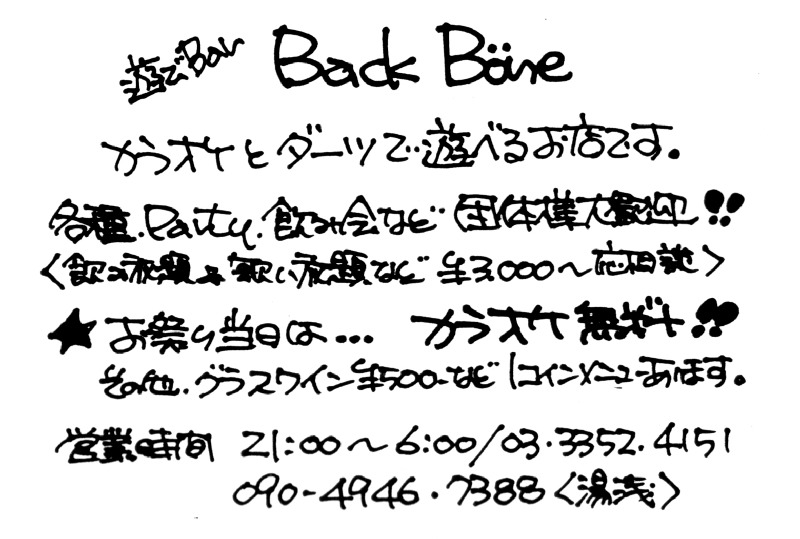 遊べBar Back Böne
カラオケとダーツで遊べるお店です。
各種.Party.飲み会など 団体様大歓迎!!
<飲み放題&歌い放題など ¥3,000〜応相談>
★お祭り当日は... カラオケ無料!!
その他.グラスワイン¥500-など 1コインメニューあります。
営業時間 21:00〜6:00/03・3352・4151
090-4946・7388<湯浅>